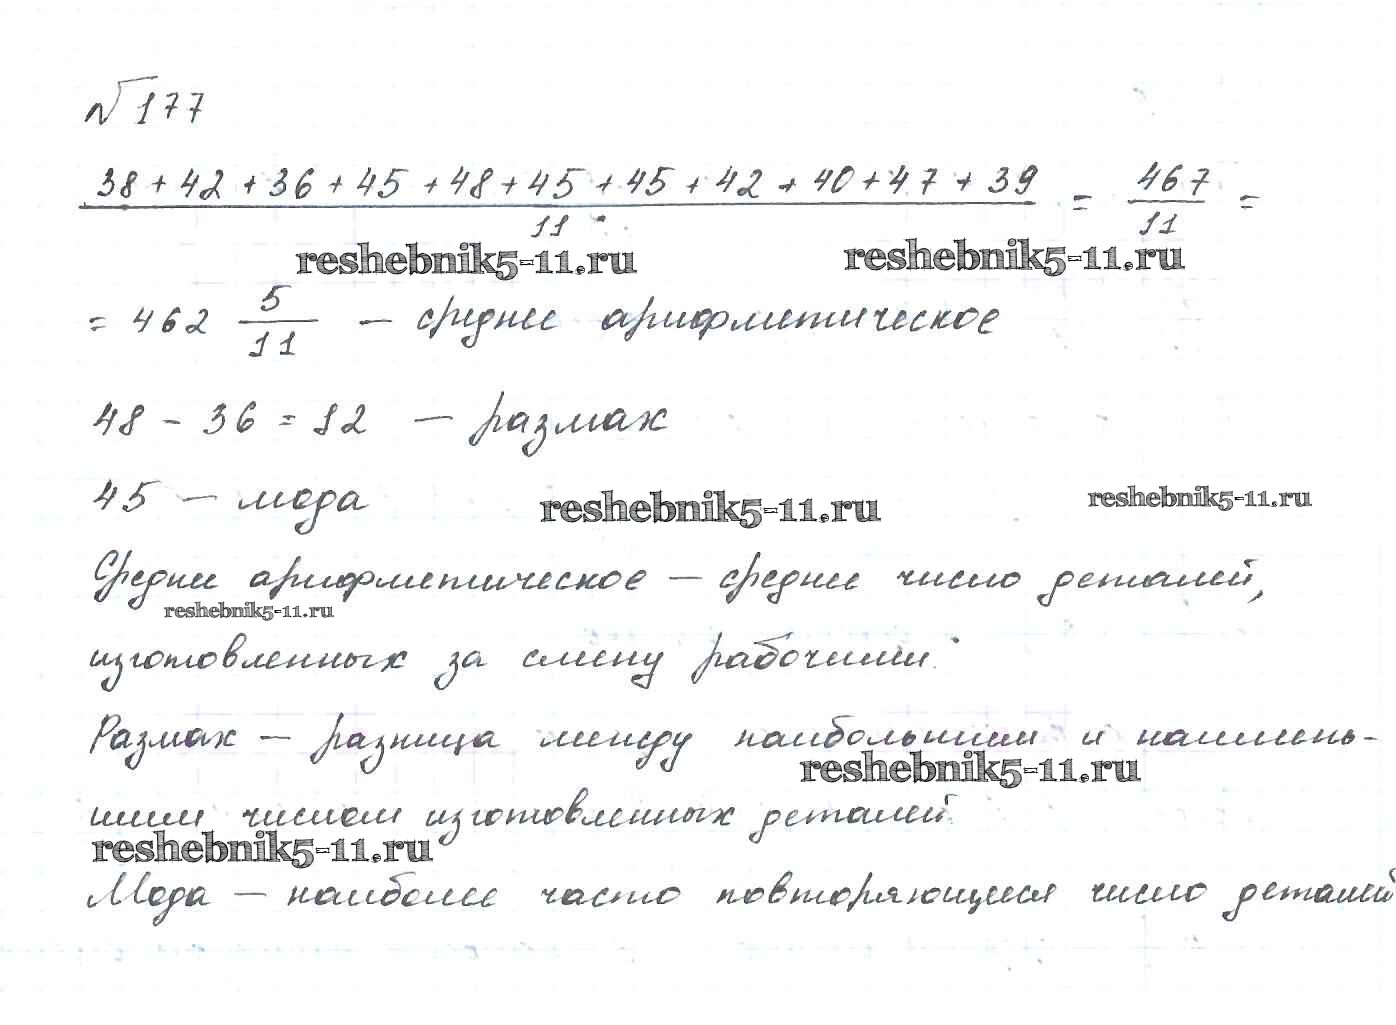 № 177
38 + 42 + 36 + 45 + 48 + 45 + 45 + 42 + 40 + 47 + 39 / 11 = 467 / 11 =
reshebnik5-11.ru reshebnik5-11.ru
= 462 5/11 — среднее арифметическое
48 - 36 = 12 — размах
45 — мода
reshebnik5-11.ru reshebnik5-11.ru
Среднее арифметическое — среднее число деталей,
reshebnik5-11.ru
изготовленных за смену рабочими.
Размах — разница между наибольшим и наимень-
reshebnik5-11.ru
шим числом изготовленных деталей.
reshebnik5-11.ru
Мода — наиболее часто повторяющееся число деталей